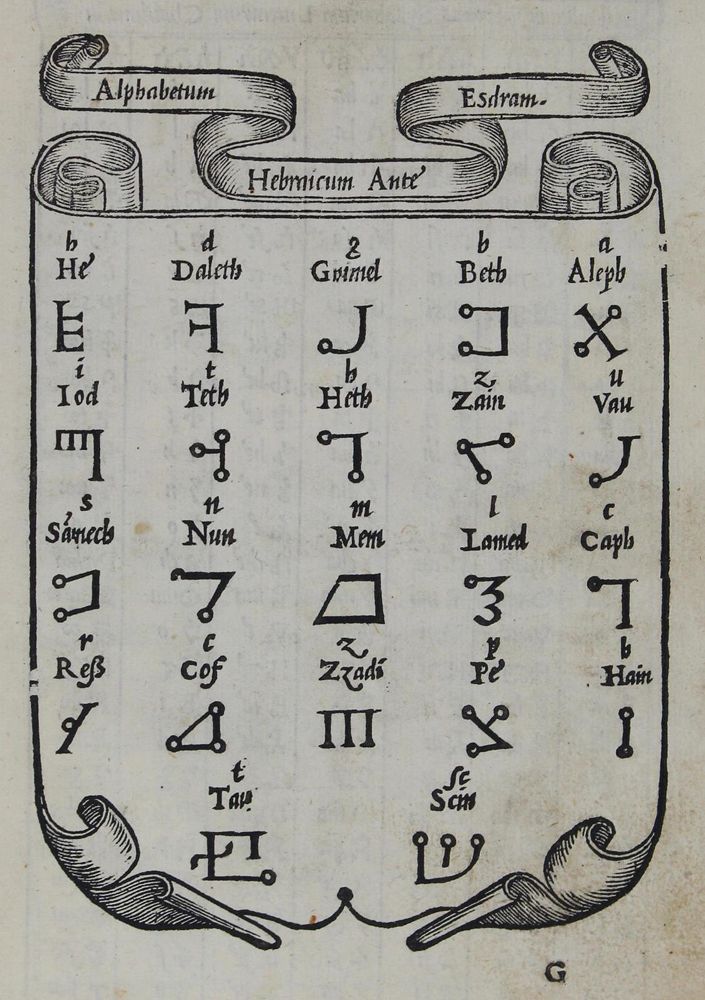 Alphabetum
Hebraicum Ante
Esdram.
h d g b a
He Daleth Gnimel Beth Aleph
i t h z u
Iod Teth Heth Zain Vau
s n m l c
Samech Nun Mem Lamed Caph
r c z p h
Reß Cof Zzadi Pe Hain
t sc
Tau Scin
G